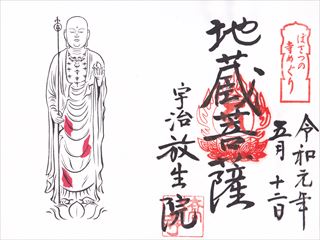 ぼさつの
寺めぐり
令和元年
五月十二日
地蔵菩薩
宇治放生院